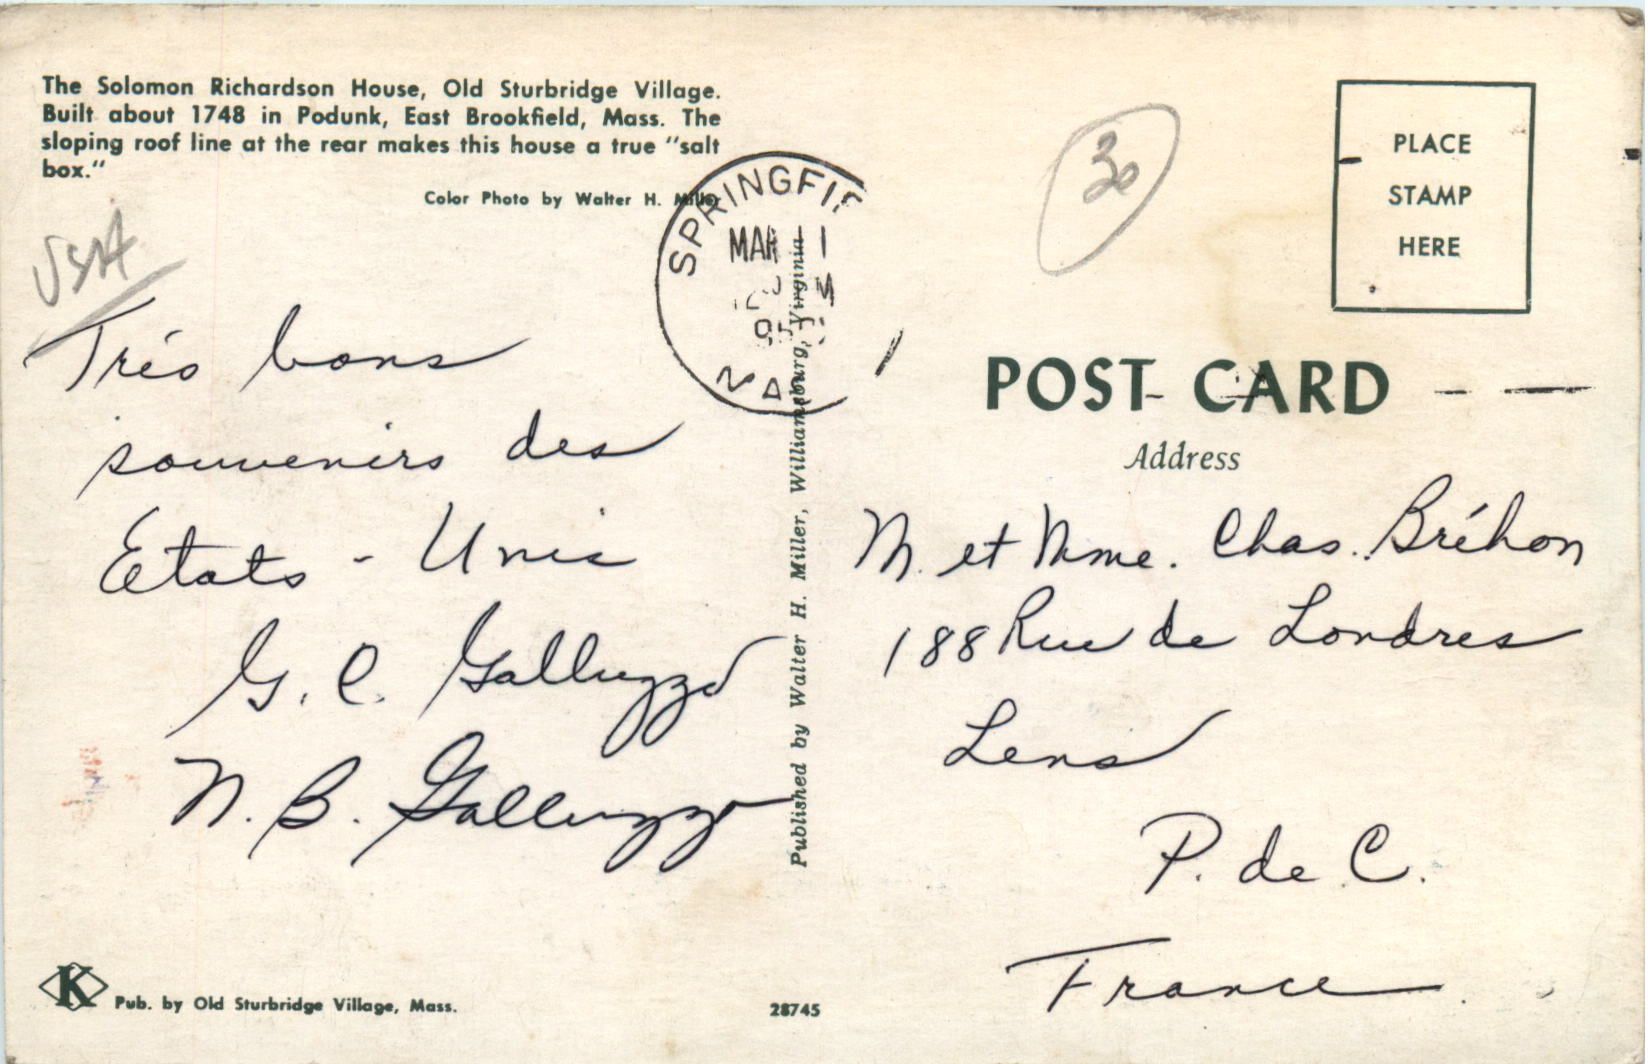 The Solomon Richardson House, Old Sturbridge Village.
Built about 1748 in Podunk, East Brookfield, Mass. The
sloping roof line at the rear makes this house a true "salt
box."
Color Photo by Walter H. Miller
USA
Trés bons
souvenirs des
Etats - Unis
G. C. Galluzzo
N. B. Galluzzo
K
Pub. by Old Sturbridge Village, Mass.
28745
SPRINGFIE
MAR 11
Published by Walter H. Miller, Williamsburg, Virginia
30
PLACE
STAMP
HERE
POST CARD
Address
M. et Mme. Chas. Bréhon
188 Rue de Londres
Lens
P. de C.
France